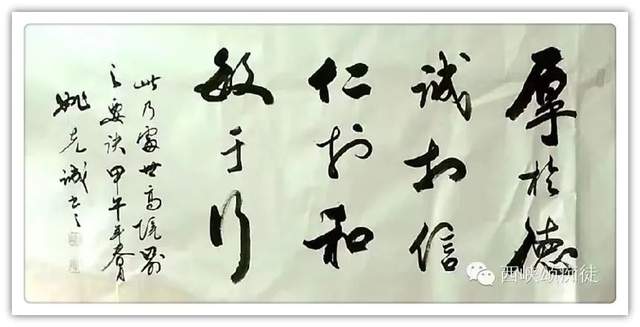 厚於德
诚於信
仁於和
敏于行
此乃處世高境界
之要诀甲午年春
姚克诚书
西峡颂痴徒